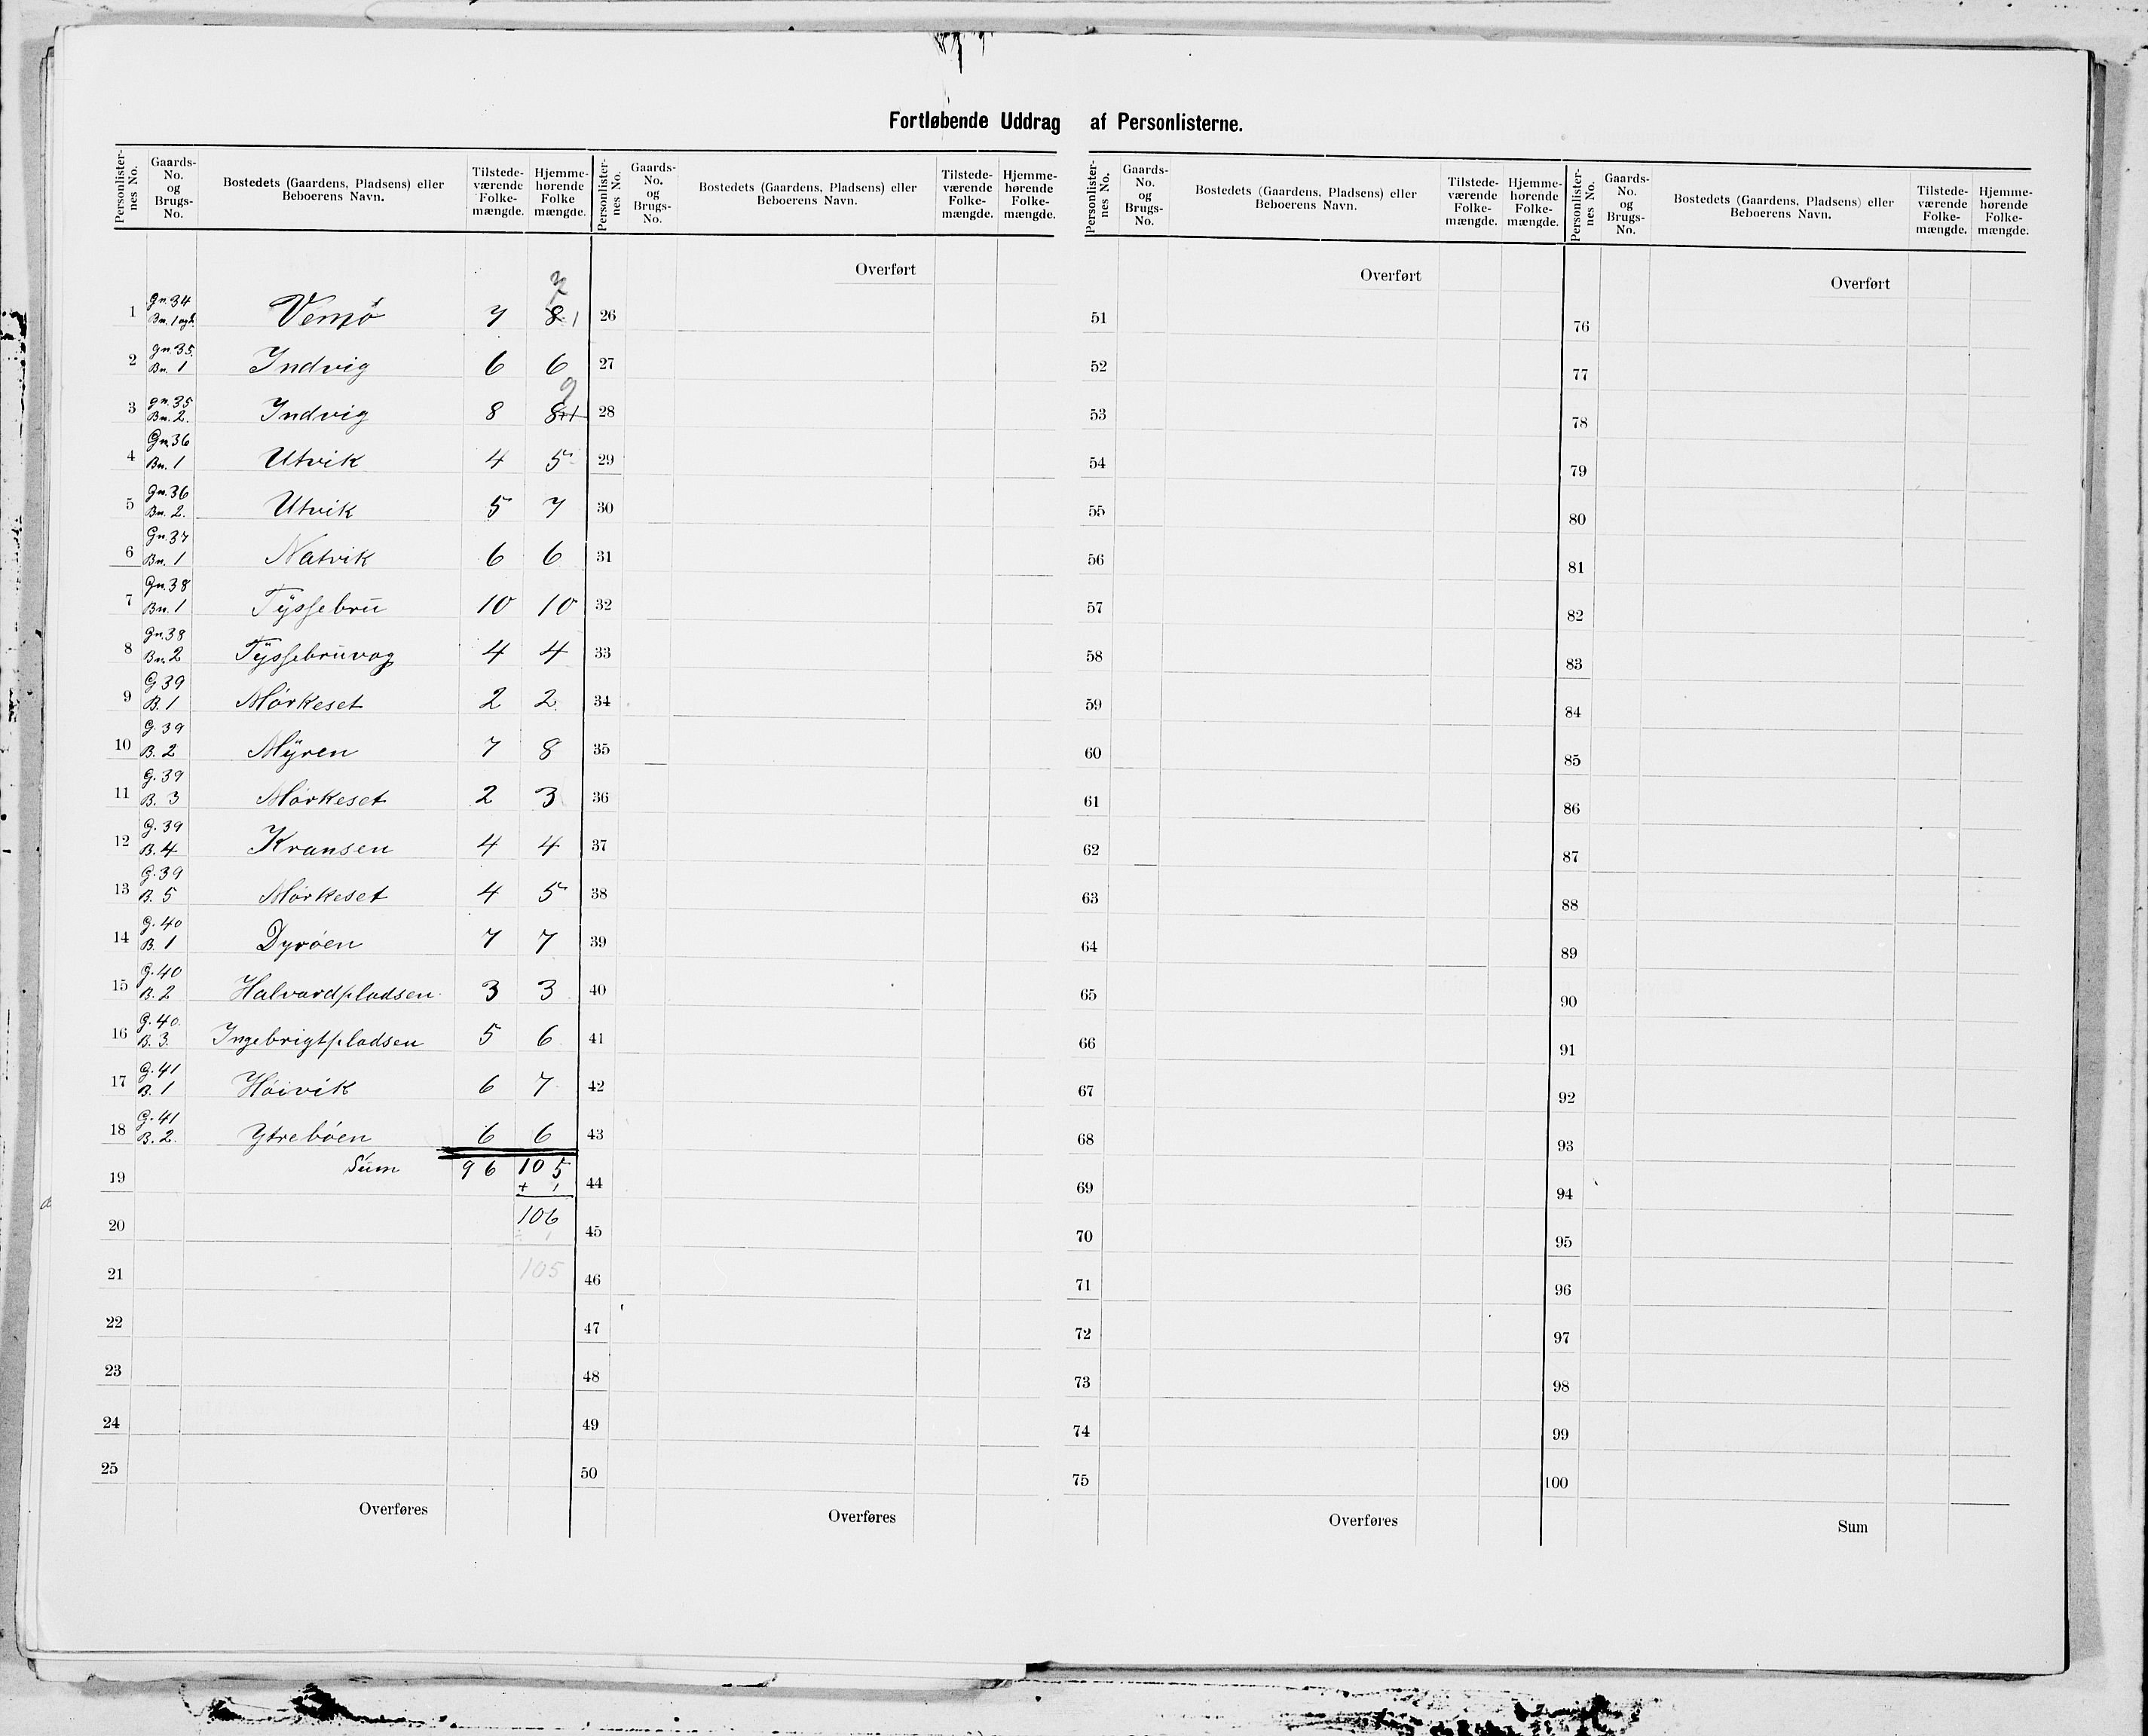 Fortløbende Uddrag af Personlisterne.
Personlister-nes No. Gaards-No. og Brugs-No. Bostedets (Gaardens, Pladsens) eller Beboerens Navn. Tilstede-værende Folke-mængde. Hjemme-hørende Folke mængde.
1 Gn. 34 Bn. 1 og 2. 7 8 1 7
2 Gn. 35. Bn. 1 Indvig 6 6
3 Gn. 35 Bn. 2. Indvig 8 8+1 9
4 Gn. 36 Bn. 1 Utvik 4 5
5 Gn. 36 Bn. 2. Utvik 5 7
6 Gn. 37 Bn. 1 Natvik 6 6
7 Gn. 38 Bn. 1 Tyssebru 10 10
8 Gn. 38 Bn. 2 Tyssebruvog 4 4
9 G 39 B. 1 Mørkeset 2 2
10 G. 39 B. 2 Myren 7 8
11 G. 39 B. 3 Mørkeset 2 3
12 G. 39 B. 4 Kransen 4 4
13 G. 39 B. 5 Mørkeset 4 5
14 G. 40 B. 1 Dyrøen 7 7
15 G. 40 B. 2 Halvardpladsen 3 3
16 G. 40. B. 3. Ingebrigtpladsen 5 6
17 G. 41 B. 1 Høivik 6 7
18 G. 41 B. 2. Ytrebøen 6 6
19 Sum 96 105
+ 1
20 106
÷ 1
21 105
22
23
24
25
Overføres
Personlister-nes No. Gaards-No. og Brugs-No. Bostedets (Gaardens, Pladsens) eller Beboerens Navn. Tilstede-værende Folke-mængde. Hjemme-hørende Folke-mængde.
Overført
26
27
28
29
30
31
32
33
34
35
36
37
38
39
40
41
42
43
44
45
46
47
48
49
50
Overføres
Personlister-nes No. Gaards-No. og Brugs-No. Bostedets (Gaardens, Pladsens) eller Beboerens Navn. Tilstede-værende Folke-mængde. Hjemme-hørende Folke-mængde.
Overført
51
52
53
54
55
56
57
58
59
60
61
62
63
64
65
66
67
68
69
70
71
72
73
74
75
Overføres
Personlister-nes No. Gaards-No. og Brugs-No. Bostedets (Gaardens, Pladsens) eller Beboerens Navn. Tilstede-værende Folke-mængde. Hjemme-hørende Folke-mængde.
Overført
76
77
78
79
80
81
82
83
84
85
86
87
88
89
90
91
92
93
94
95
96
97
98
99
100
Sum